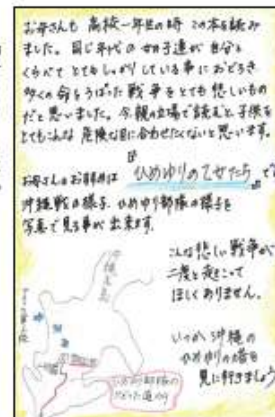 お母さんも 高校一年生の時 この本を読み
ました。同じ年代の女の子達が自分と
くらべて とても しっかりしている事におどろき
多くの命をうばった戦争をとても悲しいもの
だと思いました。今親の立場で読むと、子供を
とてもこんな 危険な目に合わせたくないと思います。
お母さんの
『ひめゆりの乙女たち』で
沖縄戦の様子、ひめゆり部隊の様子を
写真で見る事が出来ます。
こんな悲しい戦争が
二度と起こって
ほしくありません。
いつか 沖縄の
ひめゆりの塔を
見に行きましょう
沖縄本島
ひめゆり部隊の
たどった道のり